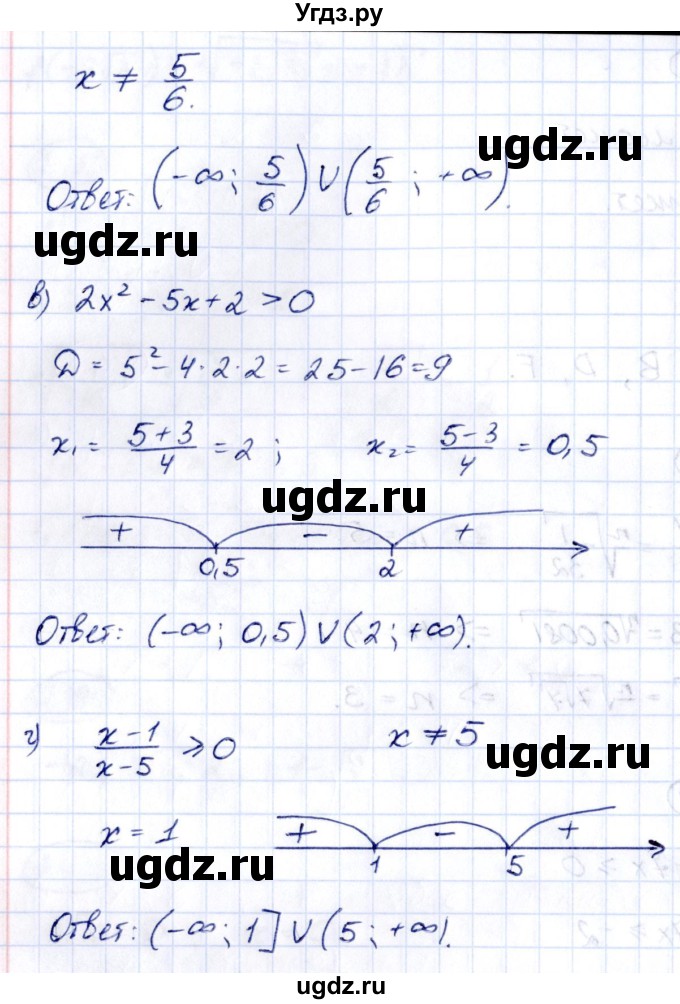 Угдз.ру
x ≠ 5/6.
ugdz.ru
Ответ: (-∞; 5/6) ∪ (5/6; +∞).
ugdz.ru
в) 2x² - 5x + 2 > 0
D = 5² - 4·2·2 = 25 - 16 = 9
x₁ = (5+3)/4 = 2; x₂ = (5-3)/4 = 0,5
ugdz.ru
+ - +
0,5 2
Ответ: (-∞; 0,5) ∪ (2; +∞).
г) (x-1)/(x-5) ≥ 0 x ≠ 5
ugdz.ru
x = 1 + - +
1 5
ugdz.ru
Ответ: (-∞; 1] ∪ (5; +∞).
ugdz.ru